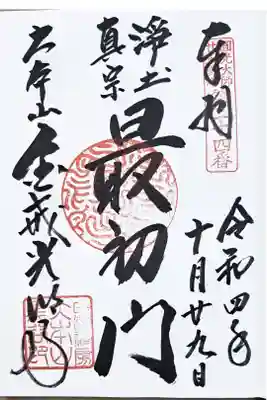 奉拝
令和四年
十月廿九日
淨土
真宗
最初門
大本山金戒光明寺